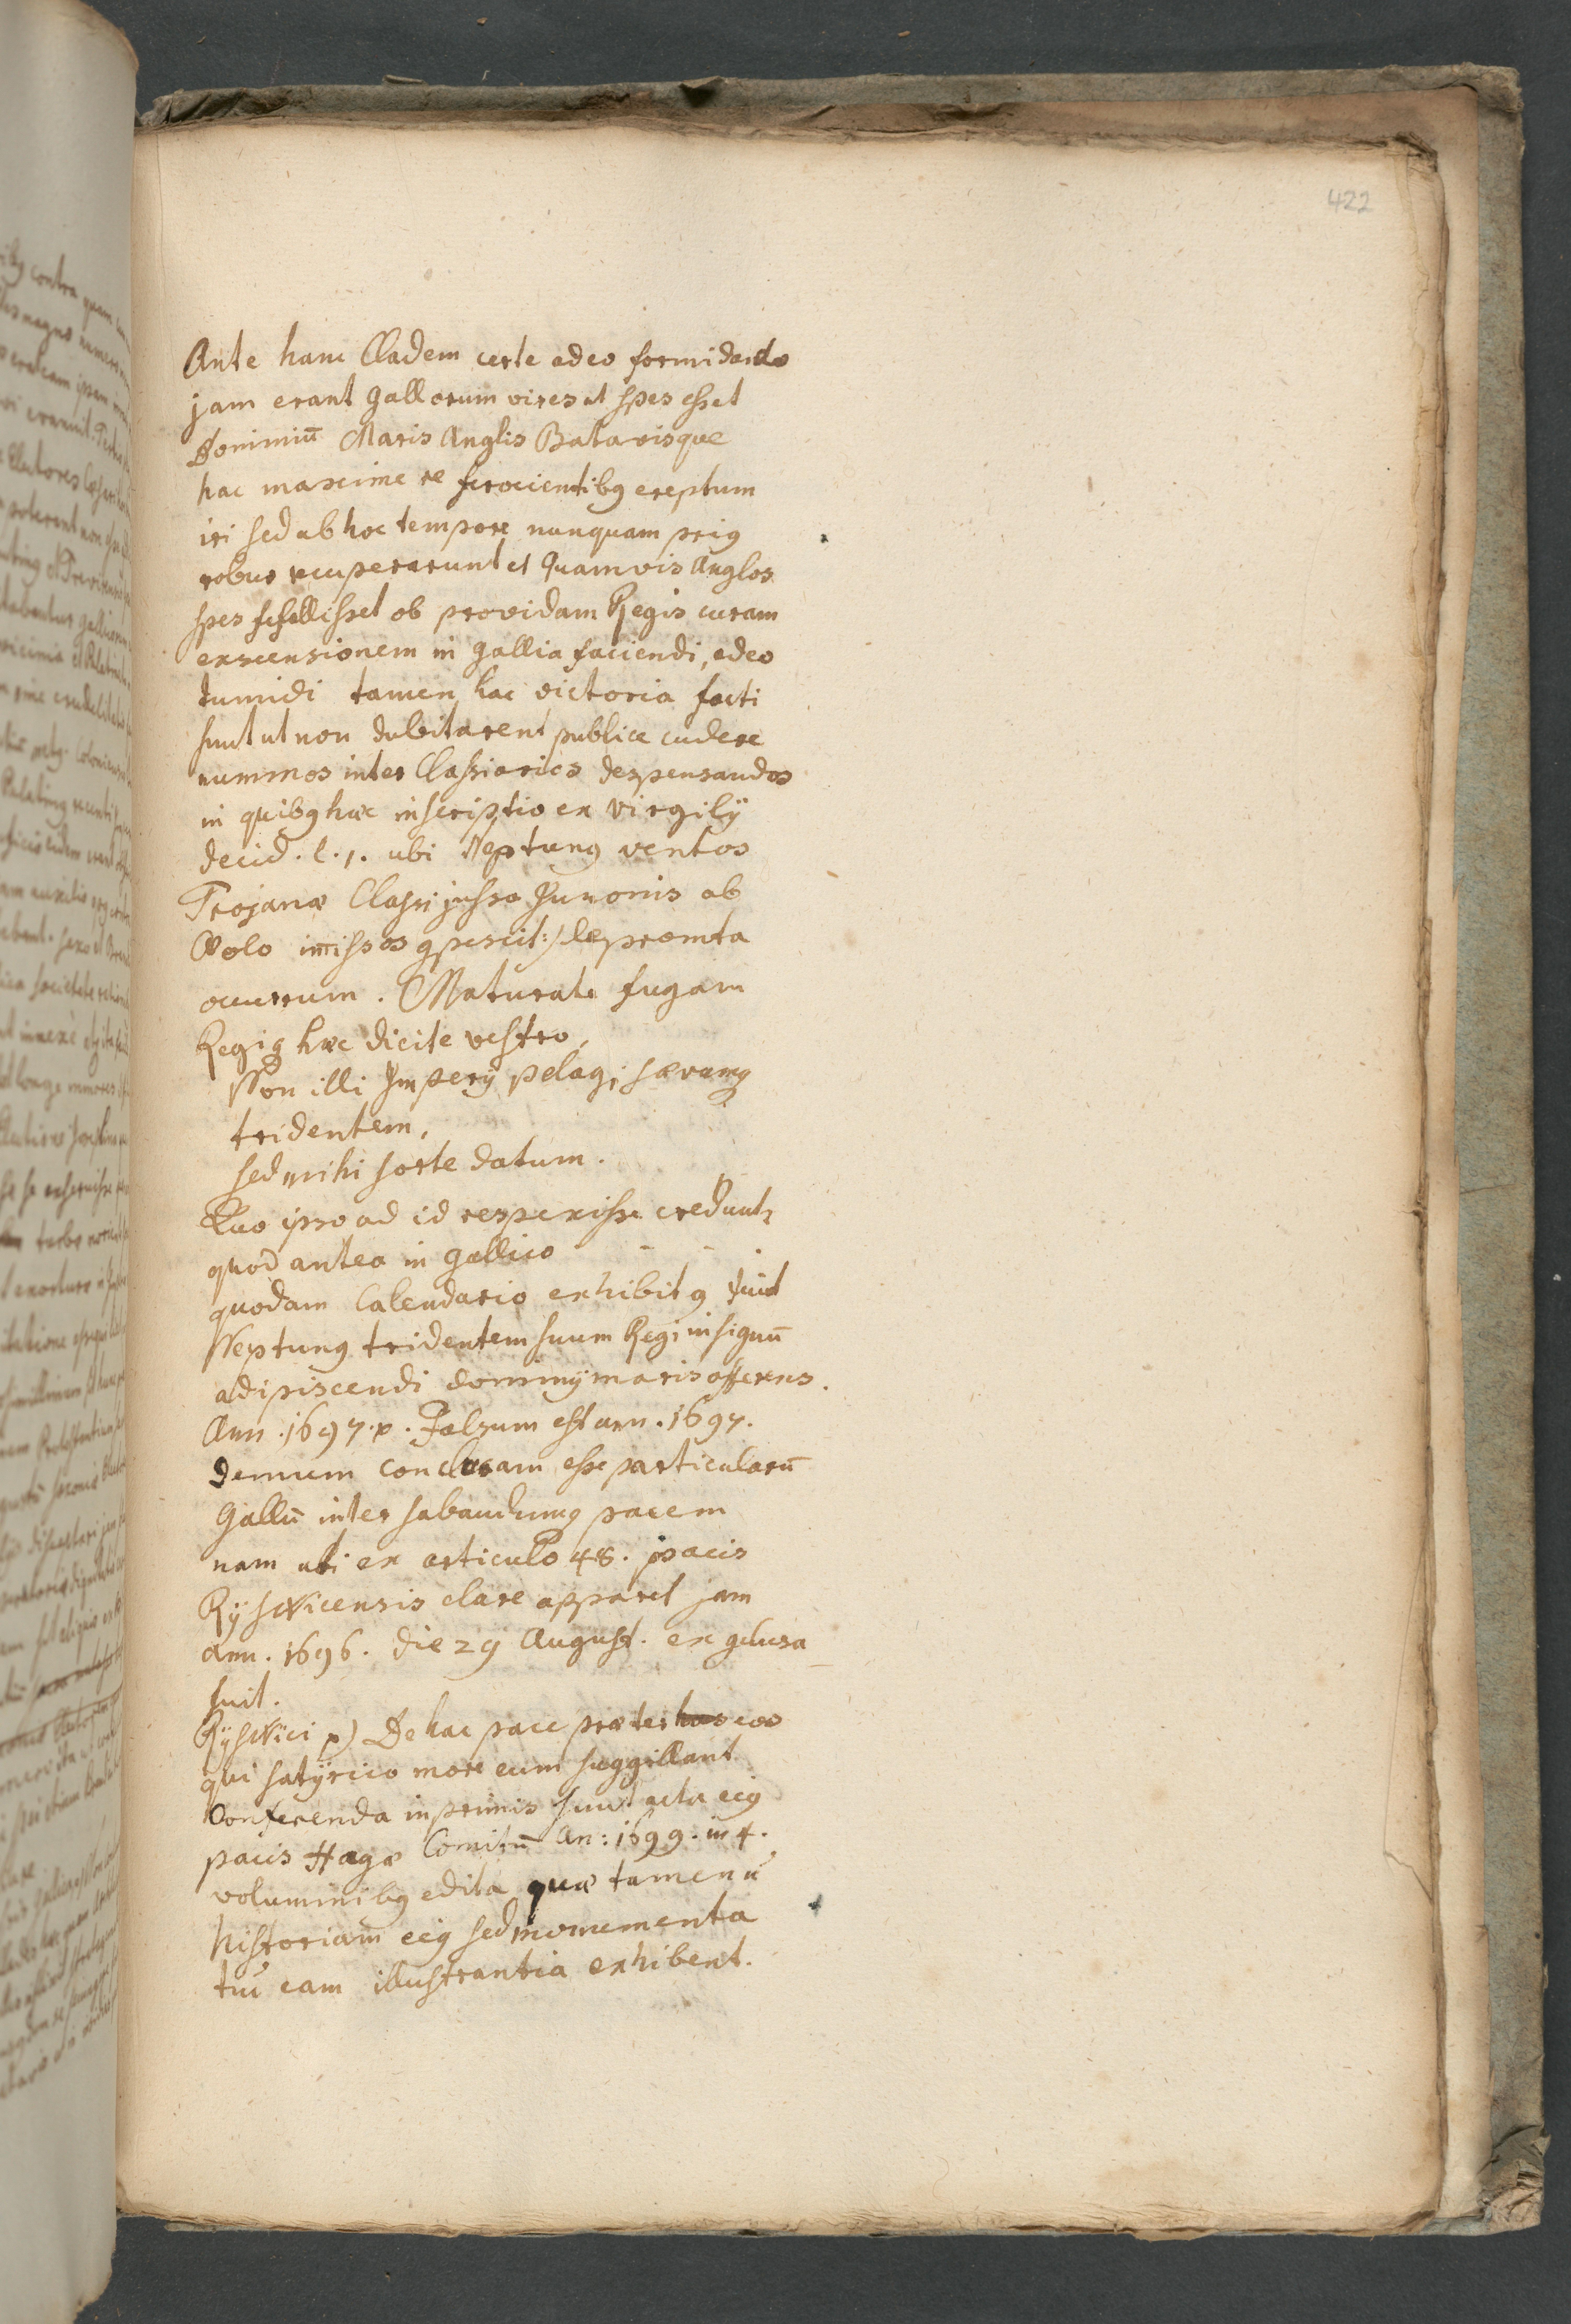 422
Ante hanc Cladem certe adeo formidandæ
jam erant Gallorum vires ut spes esset
Dominiū Maris Anglis Batavisque
hac maxime re ferocientibꝯ ereptum
iri sed ab hoc tempore nunquam priꝯ
robur recuperarunt et Quamvis Anglos
spes fefellisset ob providam Regis curam
exscensionem in Gallia faciendi, adeo
tumidi tamen hac victoria facti
sunt ut non dubitarent publice cudere
nummos inter Classiarios despensandos
in quibꝯ hæc inscriptio ex Virgilÿ
Æneid. l. 1. ubi Neptunꝯ ventos
Trojanæ Classi jussa Junonis ab
Æolo im̅issos ꝯpescit:) depromta
occurrum. Maturate fugam
Regiq hæc dicite vestro,
Non illi Imperÿ pelagi sævumq
tridentem,
sed mihi sorte datum.
Quo ipso ad id respexisse credunt˜
quod antea in Gallico - -
quodam Calendario exhibitꝯ fuit
Neptunꝯ tridentem suum Regi in signū
adipiscendi dominÿ maris offerens.
Ann. 1697. p. Falsum est ann. 1697.
demum conclusam esse particularū
Gallū inter sabaudumq pacem
nam uti ex articulo 48. pacis
Rÿswicensis clare apparet jam
ann. 1696. die 29 August. ex ꝯclusa
fuit.
Rÿswici p) De hac pace præter hos eos
qui satÿrico more eum suggillant
Conferenda inprimis sunt acta eiꝯ
pacis Hagæ Comitū An: 1699. in 4.
voluminibꝯ edita quæ tamen n̄
historiam eiꝯ sed monumenta
tm̄ eam illustrantia exhibent.